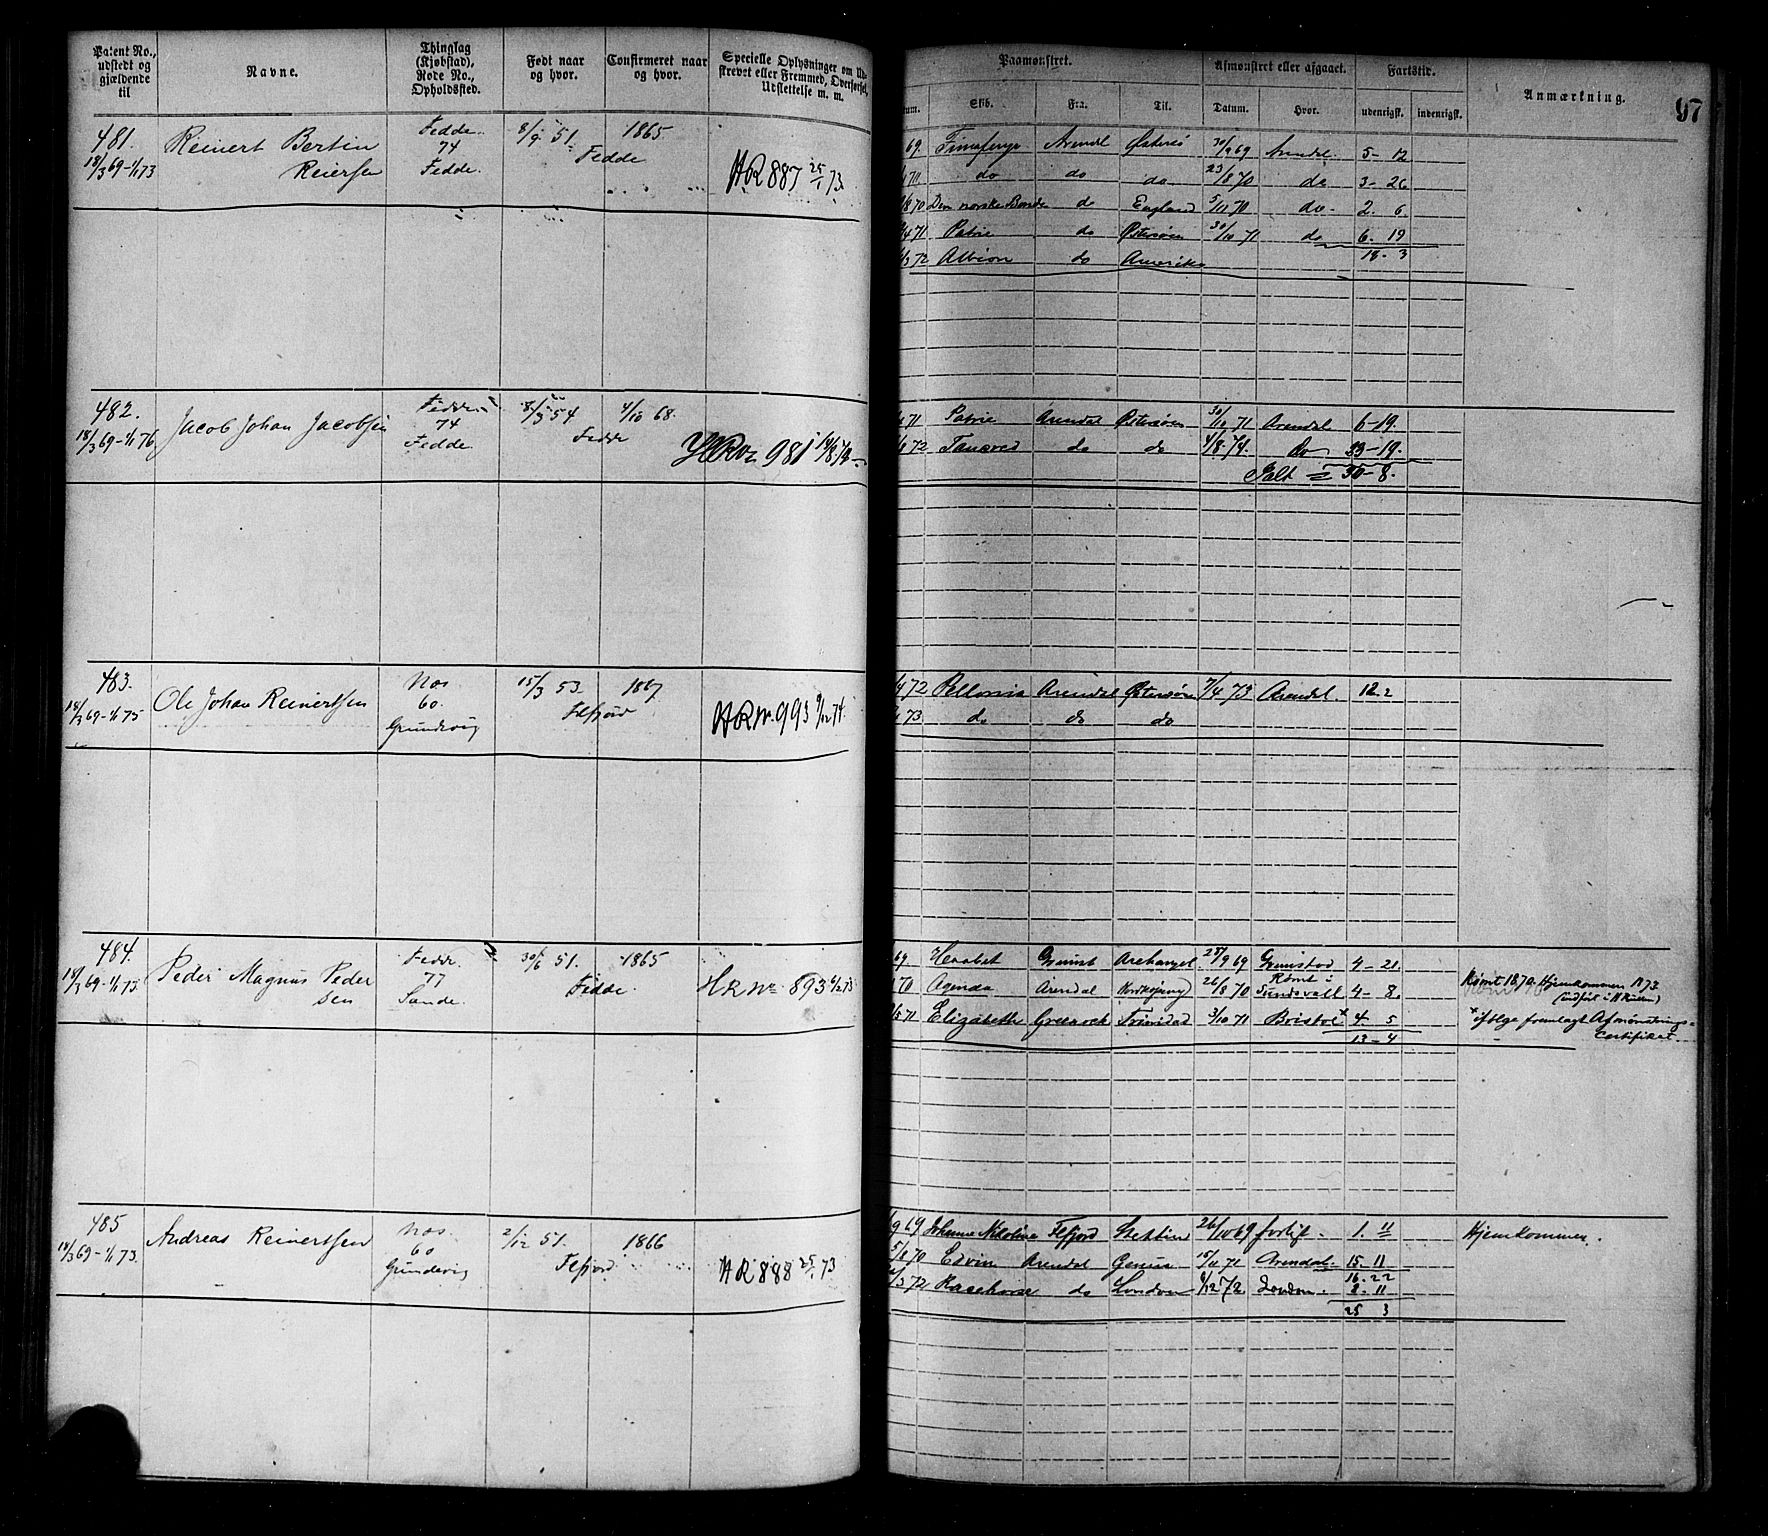 Patent No., udstedt og gjældende til
Navne.
Thinglag (Kjøbstad), Rode No., Opholdssted.
Født naar og hvor.
Confirmeret naar og hvor.
Specielle Oplysninger om Ud-
skrevet eller Fremmed, Overførsel,
Udslettelse m. m.
Paamønstret.
Afmønstret eller afgaaet.
Fartstid.
Anmærkning.
97
Skib. Fra. Til. Datum. Hvor. udenrigsk. indenrigsk.
481. Reinert Bertin Fedde. 8/9 51. 1865
18/3 69-1/1 73 Reiersen 74 Fedde
Fedde. HR 887 25/1 73.
69. Arendl Østersø 30/9 69 Arendal. 5-12
71 do do do 23/8 70 do 3-26
70 Den norske Bonde do England 3/12 70 do 2. 6
4 71 Patrie do Østersøen 30/10 71 do 6. 19
3 72 Albion do Amerika 18-3
482. Jacob Johan Jacobsen Fedde 8/5 54 4/10 68.
18/3 69-1/1 76 74 Fedde
Fedde 981
71 Patrie Arendal Østersøen 30/10 71 Arendal 6-19.
72 Tancred do do 4/8 74. do 23-19.
Ialt = 30-8.
483. Ole Johan Reinertsen Næs 15/3 53. 1867
18/3 69-1/1 75 60. Flefjord
Grundevig HR Nr. 993 9/12 74.
4 72 Bellona Arendal Østersøen 7/4 73 Arendal. 12-2
73 do do do
484. Peder Magnus Peder Fedde 30/6 51. 1865
18/3 69-1/1 73. sen 77 Fedde.
Sande. HR No 893 4/2 73
69 Haabet Grimst Archangel 28/9 69 Grimstad 4-21.
70 Agenda Arendal 26/8 70 Rømt i Sundsvall 4-8.
Rømt 1870. Hjemkommen 1873.
5 71 Elizabeth Greenock Trinidad 3/10 71 Bristol x 4. 5
x ifølge fremlagt Afmønstrings-
Certifikat.
13-4
485 Andreas Reinertsen Næs. 2/12 51. 1866
18/3 69-1/1 73. 60 Flefjord
Grundevig HR 888 25/1 73
9 69 Johanne Nicoline Flefjord Stettin 26/10 69 forlist. 1. 11
Hjemkommen.
5/8 70 Edvin Arendal Genua 15/11 71 Arendal. 15. 11
16. 22
3 72 Racehorse do London 9/12 72. London. 8. 11
25 3